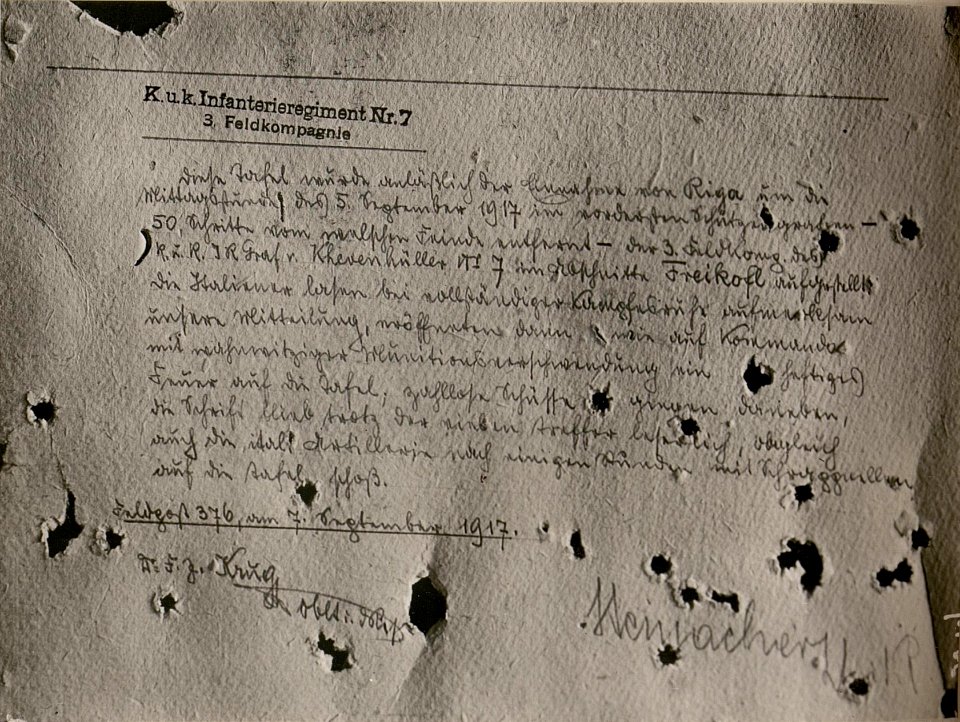 K.u.k. Infanterieregiment Nr. 7
3. Feldkompagnie
Diese Tafel wurde anläßlich der Einnahme von Riga um die
Mittagsstunde des 5. September 1917 im vordersten Schützengraben –
50 Schritte vom welschen Feinde entfernt – der 3. Feldkomp. des
K.u.K. IR Graf v. Khevenhüller Nr 7 im Abschnitte Freikofl aufgestellt.
Die Italiener lasen bei vollständiger Kampfesruhe aufmerksam
unsere Mitteilung, eröffneten dann wie auf Kommando
mit wahnwitziger Munitionsverschwendung ein heftiges
Feuer auf die Tafel; zahllose Schüsse gingen daneben,
die Schrift blieb trotz der vielen Treffer leserlich, obgleich
auch die ital. Artillerie nach einigen Stunden mit Schrappnellen
auf die Tafel schoß.
Feldpost 376, am 7. September 1917.
Krug
Oblt.
Steinacher